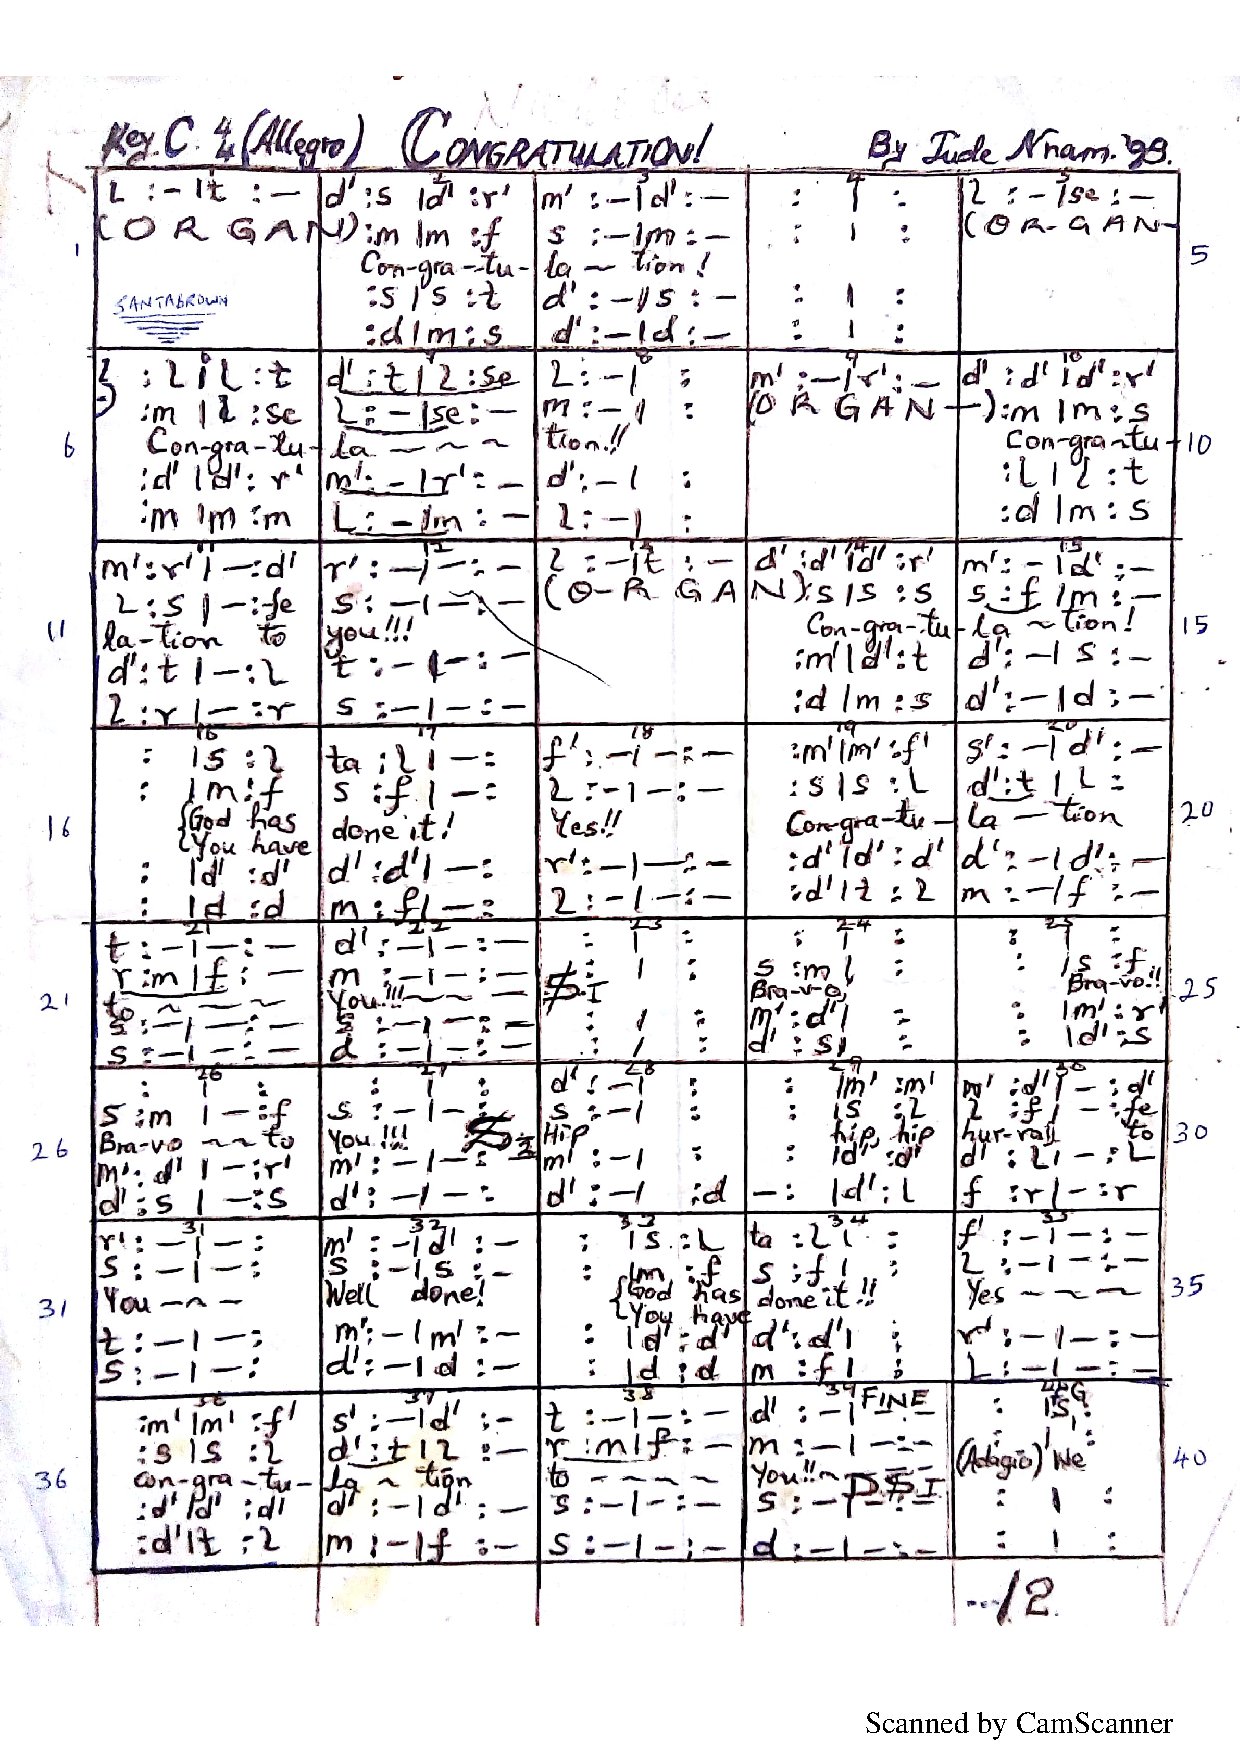 Key. C. 4/4 (Allegro) CONGRATULATION! By Jude Nnam. '99.
1 2 3 4 5
l :- |t :- d' :s |d' :r' m' :- |d' :- : | : l :- |se :-
(ORGAN) :m |m :f s :- |m :- : | : (OR-GAN-
Con-gra-tu- la ~ tion!
1 5
SANTABROWN :s |s :t d' :- |s :- : | :
:d |m :s d' :- |d :- : | :
6 7 8 9 10
:l |l :t d' :t |l :se l :- | : m' :- |r' :- d' :d' |d' :r'
:m |l :se l :- |se :- m :- | : (ORGAN-) :m |m :s
6 Con-gra-tu- la ~ ~ ~ tion!! Con-gra-tu- 10
:d' |d' :r' m' :- |r' :- d' :- | : :l |l :t
:m |m :m l :- |m :- l :- | : :d |m :s
11 12 13 14 15
m' :r' |- :d' r' :- |- :- l :- |t :- d' :d' |d' :r' m' :- |d' :-
l :s |- :fe s :- |- :- (O-RGAN) :s |s :s s :f |m :-
11 la-tion to you!!! Con-gra-tu- la ~ tion! 15
d' :t |- :l t :- |- :- :m' |d' :t d' :- |s :-
l :r |- :r s :- |- :- :d |m :s d' :- |d :-
16 17 18 19 20
: |s :l ta :l |- : f' :- |- :- :m' |m' :f' s' :- |d' :-
: |m :f s :f |- : l :- |- :- :s |s :l d' :t |l :
16 God has done it! Yes!! Con-gra-tu- la - tion 20
You have
: |d' :d' d' :d' |- : r' :- |- :- :d' |d' :d' d' :- |d' :-
: |d :d m :f |- : l :- |- :- :d' |t :l m :- |f :-
21 22 23 24 25
t :- |- :- d' :- |- :- : | : : | : : | :
r :m |f :- m :- |- :- : | : s :m | : : |s :f
21 to ~ ~ ~ You!!! ~ ~ ~ S.I Bra-vo, Bra-vo!! 25
s :- |- :- s :- |- :- : | : m' :d' | : : |m' :r'
s :- |- :- d :- |- :- : | : d' :s | : : |d' :s
26 27 28 29 30
: | : : | : d' :- | : : |m' :m' m' :d' |- :d'
s :m |- :f s :- |- : s :- | : : |s :l l :f |- :fe
26 Bra-vo ~ ~ to You!!! S.2 Hip hip, hip hur-rah to 30
m' :d' |- :r' m' :- |- : m' :- | : : |d' :d' d' :l |- :l
d' :s |- :s d' :- |- : d' :- | :d - : |d' :l f :r |- :r
31 32 33 34 35
r' :- |- : m' :- |d' :- : |s :l ta :l | : f' :- |- :-
s :- |- : s :- |s :- : |m :f s :f | : l :- |- :-
31 You ~ ~ ~ Well done! God has done it!! Yes ~ ~ ~ 35
You have
t :- |- : m' :- |m' :- : |d' :d' d' :d' | : r' :- |- :-
s :- |- : d' :- |d :- : |d :d m :f | : l :- |- :-
36 37 38 39 FINE 40 G
:m' |m' :f' s' :- |d' :- t :- |- :- d' :- |- :- : |s, :
:s |s :l d' :t |l :- r :m |f :- m :- |- :- : | :
36 con-gra-tu- la ~ tion to ~ ~ ~ ~ You!! ~ D.S.I (Adagio) We 40
:d' |d' :d' d' :- |d' :- s :- |- :- s :- |- :- : | :
:d' |t :l m :- |f :- s :- |- :- d :- |- :- : | :
--/2.
Scanned by CamScanner